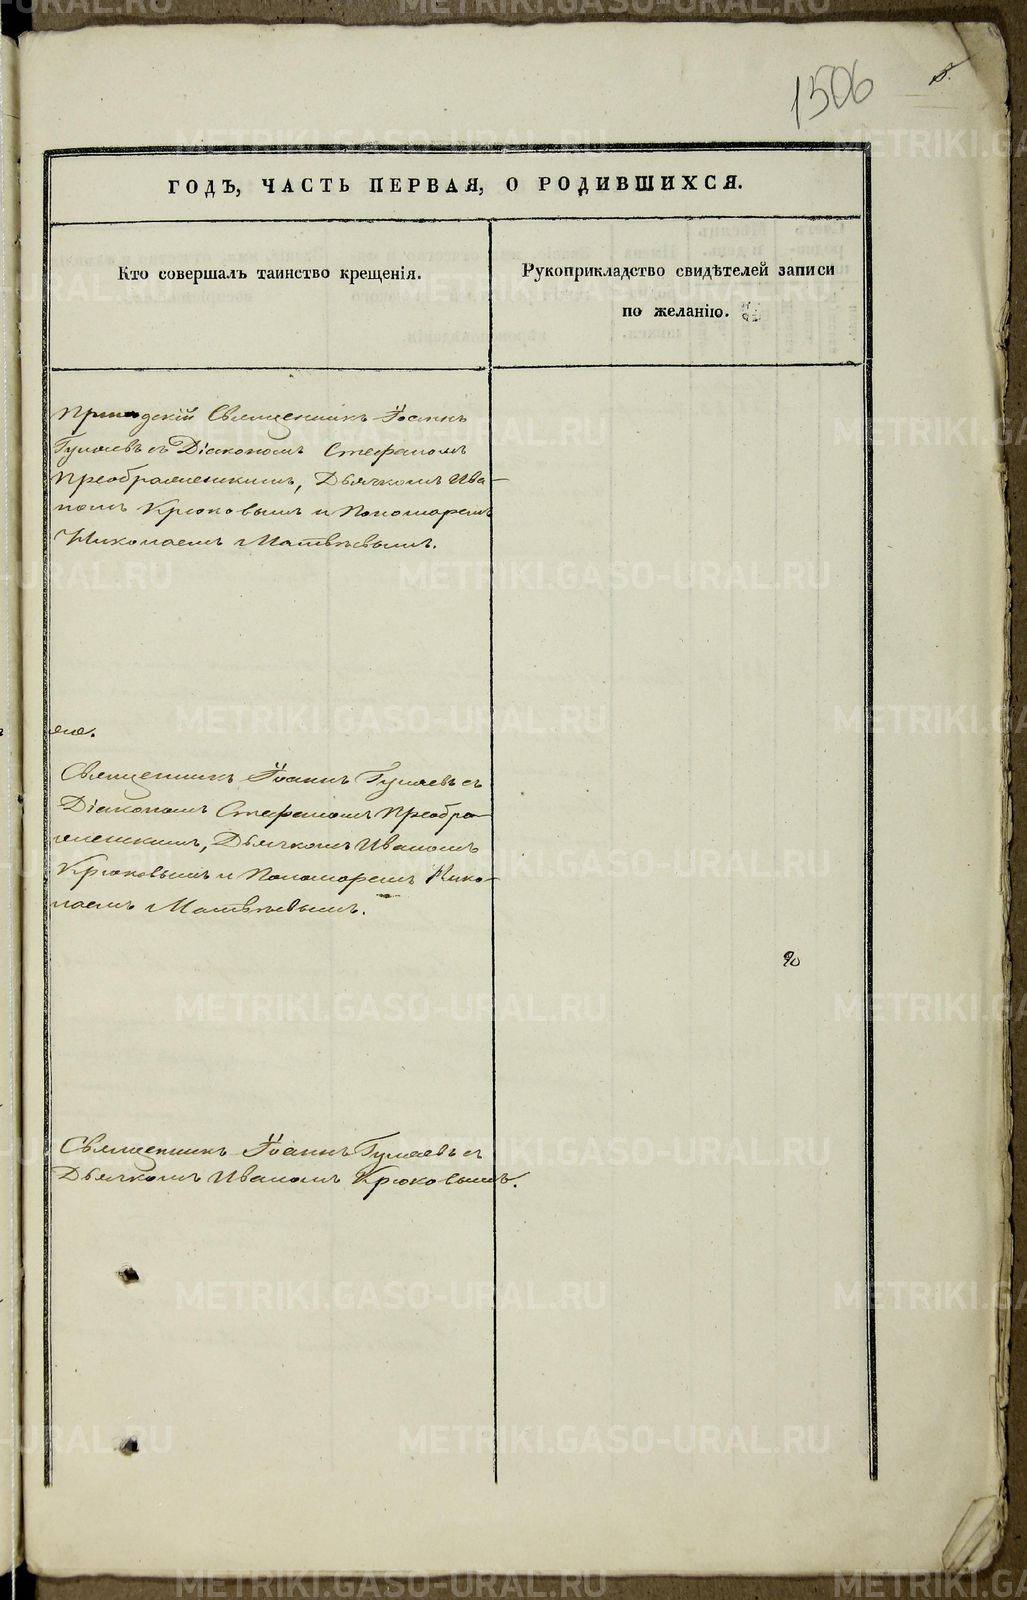 1506
ГОДЪ, ЧАСТЬ ПЕРВАЯ, О РОДИВШИХСЯ.
Кто совершалъ таинство крещенія.
Рукоприкладство свидѣтелей записи
по желанію.
Приходскій Священникъ Іоаннъ
Гуляевъ съ Діакономъ Стефаномъ
Преображенскимъ, Дьячкомъ Ива-
номъ Крюковымъ и Пономаремъ
Николаемъ Матвѣевымъ.
Священникъ Іоаннъ Гуляевъ съ
Діакономъ Стефаномъ Преобра-
женскимъ, Дьячкомъ Иваномъ
Крюковымъ и Пономаремъ Нико-
лаемъ Матвѣевымъ.
Священникъ Іоаннъ Гуляевъ съ
Дьячкомъ Иваномъ Крюковымъ.
METRIKI.GASO-URAL.RU